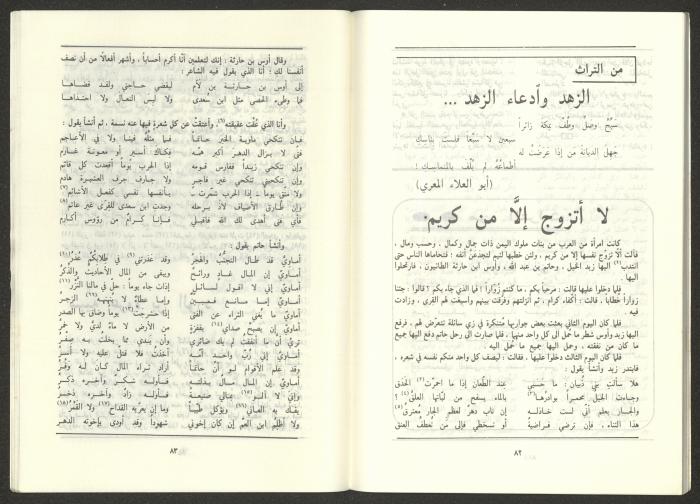 من التراث
الزهد وادعاء الزهد ...
سَبِّحْ وصلِّ وطُفْ بمكة زائراً
سبعين لا سبعاً فلست بناسكِ
جَهِلَ الديانةَ مَن إذا عَرَضَتْ له
أطماعُهُ لم يُلْفَ بالمتماسِكِ !
(أبو العلاء المعري)
لا أتزوج إلّا من كريم.
كانت امرأة من العرب من بنات ملوك اليمن ذات جمال وكمال ، وحسب ومال ،
فآلت ألّا تزوّج نفسها إلّا من كريم ، ولئن خطبها لئيم لتجدعنّ أنفه : فتحاماها الناس حتى
انتدب إليها زيد الخيل ، وحاتم بن عبد الله ، وأوس ابن حارثة الطائيون ، فارتحلوا
إليها .
فلما دخلوا عليها قالت : مرحباً بكم ، ما كنتم زُوّاراً ! فما الذي جاء بكم ؟ قالوا : جئنا
زواراً خطّاباً . قالت : أكفاء كرام ، ثم أنزلتهم وفرقت بينهم وأسبغت لهم القرى ، وزادت
فيه .
فلما كان اليوم الثاني بعثت بعض جواريها متنكرة في زي سائلة تتعرّض لهم ، فرفع
إليها زيد وأوس شطر ما حُمل إلى كل واحد منهما . فلما صارت إلى رحل حاتم دفع إليها جميع
ما كان من نفقته ، وحمل إليها جميع ما حمل إليه .
فلما كان اليوم الثالث دخلوا عليها . فقالت : ليصف كل واحد منكم نفسه في شعره .
فابتدر زيد وأنشأ يقول :
هلا سألتِ بني ذُبيان : ما حَسَبي
عند الطعان إذا ما احمرّت الحدق
وجاءت الخيل محمراً بوادرها
بالماء، يسفح من لبّاتها العلق
والجار يعلم أني لست خاذله
إن ناب دهر لعظم الجار معترق
هذا الثناء ، فإن ترضي فراضية
أو تسخطي فإلى من تُعطف العنق
٨٢
وقال أوس بن حارثة : إنك لتعلمين أنّا أكرم أحساباً ، وأشهر أفعالاً من أن نصف
أنفسنا لك ؛ أنا الذي يقول فيه الشاعر :
إلى أوس بن حارثة بن لأم
ليقضي حاجتي ولقد قضاها
فما وطىء الحصى مثل ابن سعدى
ولا لبس النعال ولا احتذاها
وأنا الذي عُقّت عقيقته ، وأعتقتْ عن كل شعرة فيها عنه نسمة . ثم أنشأ يقول :
فإن تنكحي ماوية الخير حاتماً
فما مثلُه فينا ولا في الأعاجم
فتى لا يزال الدهر أكبر همّه
فكاك أسير أو معونة غارم
وإن تنكحي زيداً ففارس قومه
إذا الحرب يوماً أقعدت كل قائم
وإن تنكحيني تنكحي غير فاجر
ولا جارف جرف العشيرة هادم
ولا متق يوماً - إذا الحرب شمّرت -
بأنفسها نفسي كفعل الأشائم
وإن طارق الأضياف لاذ برحله
وجدت ابن سعدى للقرى غير عاتم
فأي فتى أهدى لك الله فاقبلي
فإنا كرامٌ من رؤوس أكارم
وأنشأ حاتم يقول :
أماويّ قد طال التجنّب والهجر
وقد عذرتني في طلابكم عُذرُ
أماويّ إن المال غادٍ ورائح
ويبقى من المال الأحاديث والذكر
أماويّ إني لا أقول لسائل
إذا جاء يوماً : حلّ في مالنا النَّزْر
أماويّ إما مانع فمبين
وإما عطاء لا ينهنهه الزجر
أماويّ ما يُغني الثراء عن الفتى
إذا حشرجتْ يوماً وضاق بها الصدر
أماويّ إن يصبح صداي بقفرةٍ
من الأرض لا ماءٌ لديّ ولا خمر
تري أن ما أنفقت لم يك ضائري
وأن يدي مما بخلت به صفر
أماويّ إني رُبّ واحد أمّه
أخذتُ فلا قتل عليه ولا أسر
وقد علم الأقوام لو أن حاتماً
أراد ثراء المال كان له وفر
أماويّ إن المال مال بذلته
فأوله شكر وآخره ذكر
وإني لا آلو بمالي صنيعة
فأوله زادٌ وآخره ذخر
يفك به العاني ويؤكل طيباً
وما إن يعرّيه القداح ولا القمر
ولا أظلم ابن العم إن كان إخوتي
شهوداً وقد أودى بإخوته الدهر
٨٣